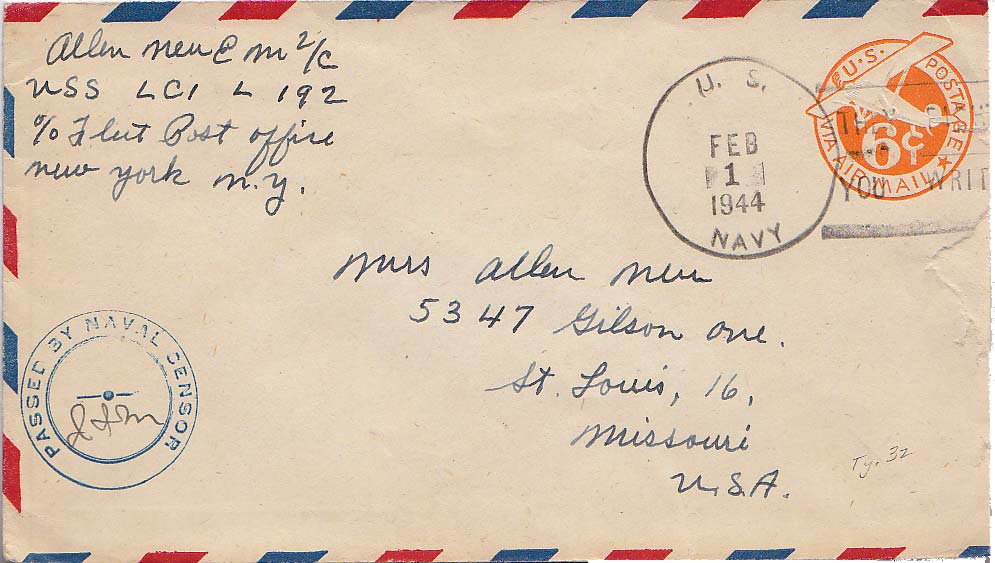 Allen New E M 2/C
USS LCI L 192
% Fleet Post office
new york n.y.
U. S.
FEB
1
1944
NAVY
U.S. POSTAGE
6¢
VIA AIR MAIL
THEY
YOU WRIT
Mrs Allen New
5347 Gilson ave.
St. Louis, 16,
Missouri
U.S.A.
PASSED BY NAVAL CENSOR
Ty. 32